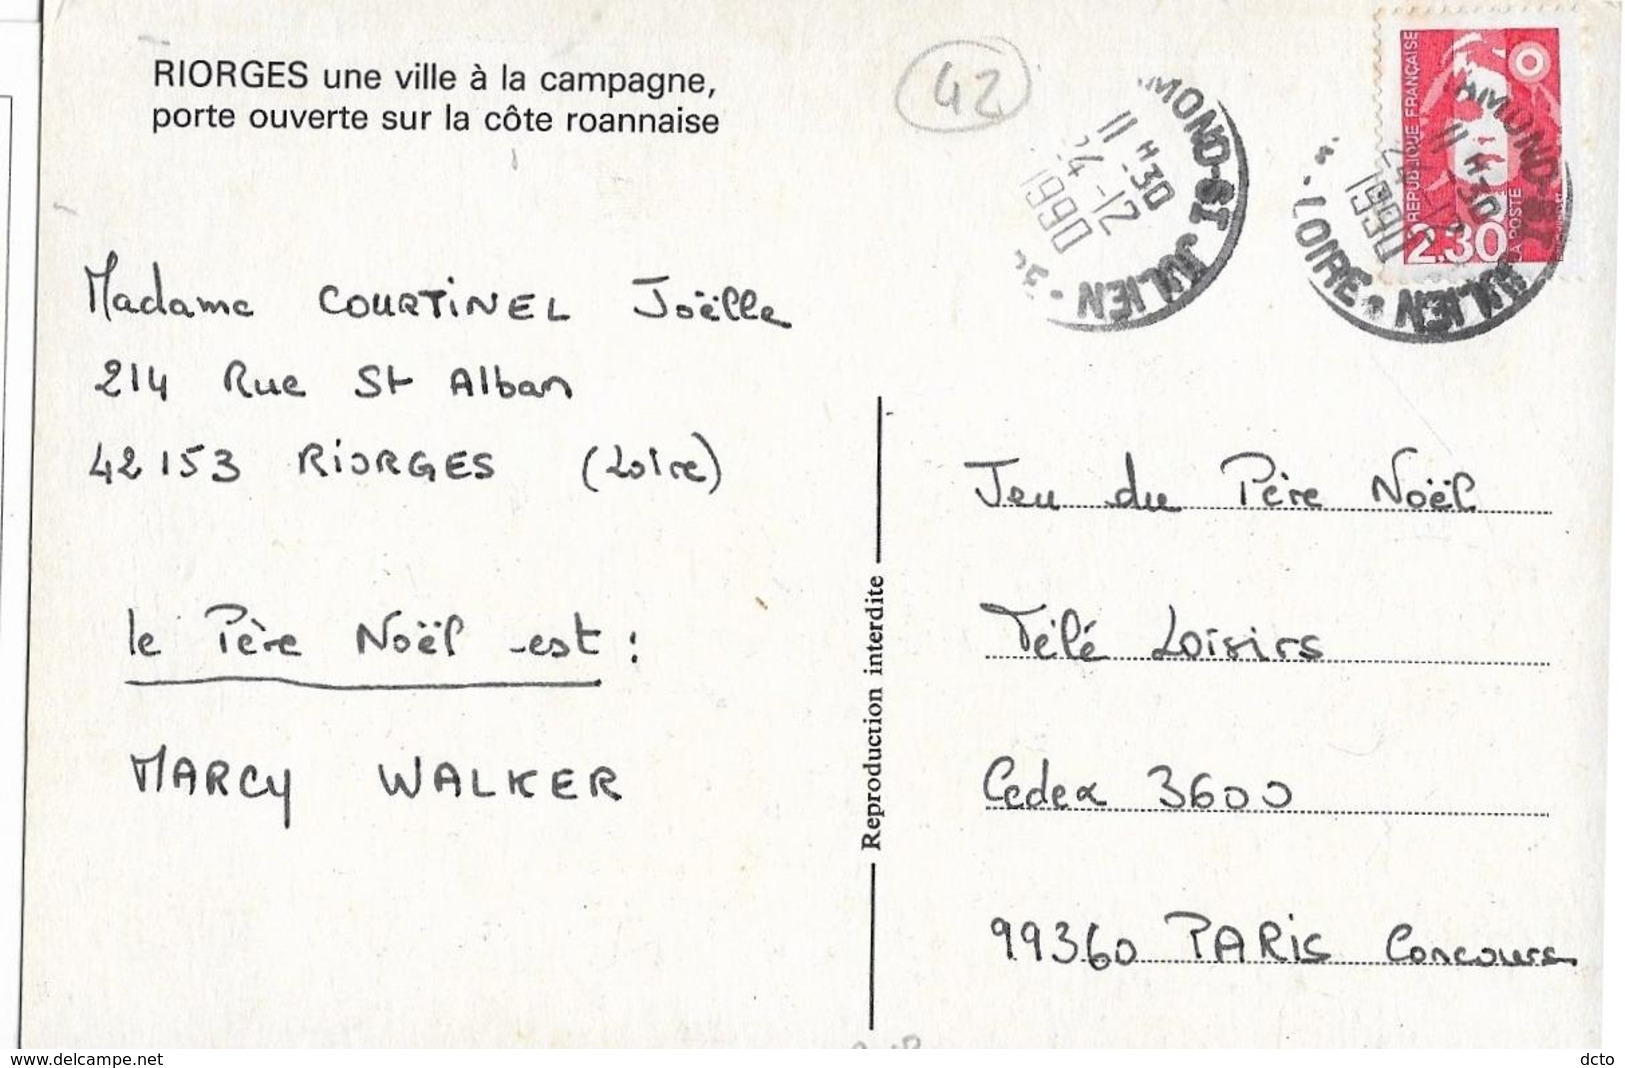 RIORGES une ville à la campagne,
porte ouverte sur la côte roannaise
42
MOND-ST JULIEN
11 H30
24-12
1990
RÉPUBLIQUE FRANÇAISE
LA POSTE
2.30
AMOND-ST JULIEN * LOIRE *
11 H30
1990
Madame COURTINEL Joëlle
214 Rue St Alban
42153 RIORGES (Loire)
le Père Noël est :
MARCY WALKER
Reproduction interdite
Jeu du Père Noël
Télé Loisirs
Cedex 3600
99360 PARIS Concours
www.delcampe.net
dcto